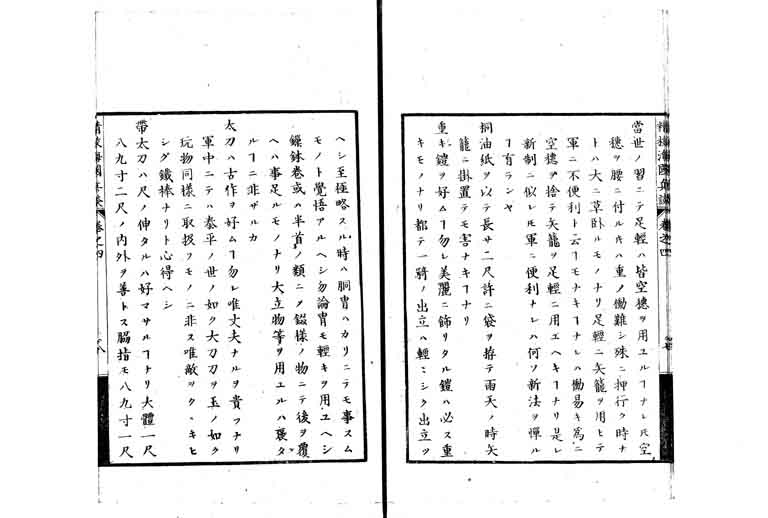 當世ノ習ニテ足輕ハ皆空穂ヲ用ユルヿナレ𪜈空
穂ヲ腰ニ付ル𪜈ハ重ノ働難シ殊ニ押行ク時ナ
トハ大ニ草臥ルモノナリ足輕ニ矢籠ヲ用ヒテ
軍ニ不便利ト云ヿモナキヿナレハ働易キ為ニ
空穂ヲ捨テ矢籠ヲ足輕ニ用エヘキヿナリ是レ
新制ニ似レ𪜈軍ニ便利ナレハ何ソ新法ヲ憚ル
ヿ有ランヤ
桐油紙ヲ以テ長サ二尺許ニ袋ヲ拵テ雨天ノ時矢
籠ニ掛置テモ害ナキヿナリ
重キ鎧ヲ好ムヿ勿レ美麗ニ飾リタル鎧ハ必ス重
キモノナリ都テ一騎ノ出立ハ輕ミシク出立ツ
ヘシ至極略スル時ハ胴冑ハカリニテモ事スム
モノト覺悟アルヘシ勿論冑モ輕キヲ用ユヘシ
鏁鉢卷或ハ半首ノ類ニ錣様ノ物ニテ後ヲ覆
ヘハ事足ルモノナリ大立物等ヲ用ユルハ褒タ
ルヿニ非ザルカ
太刀ハ古作ヲ好ムヿ勿レ唯丈夫ナルヲ貴フナリ
軍中ニテハ泰平ノ世ノ如ク大刀刀ヲ玉ノ如ク
玩物同樣ニ取扱フモノニ非ス唯敵ヲクヽキヒ
シグ鐵棒ナリト心得ヘシ
帶太刀ハ尺ノ伸タルハ好マサルヿナリ大體一尺
八九寸二尺ノ内外ヲ善トス脇指モ八九寸一尺